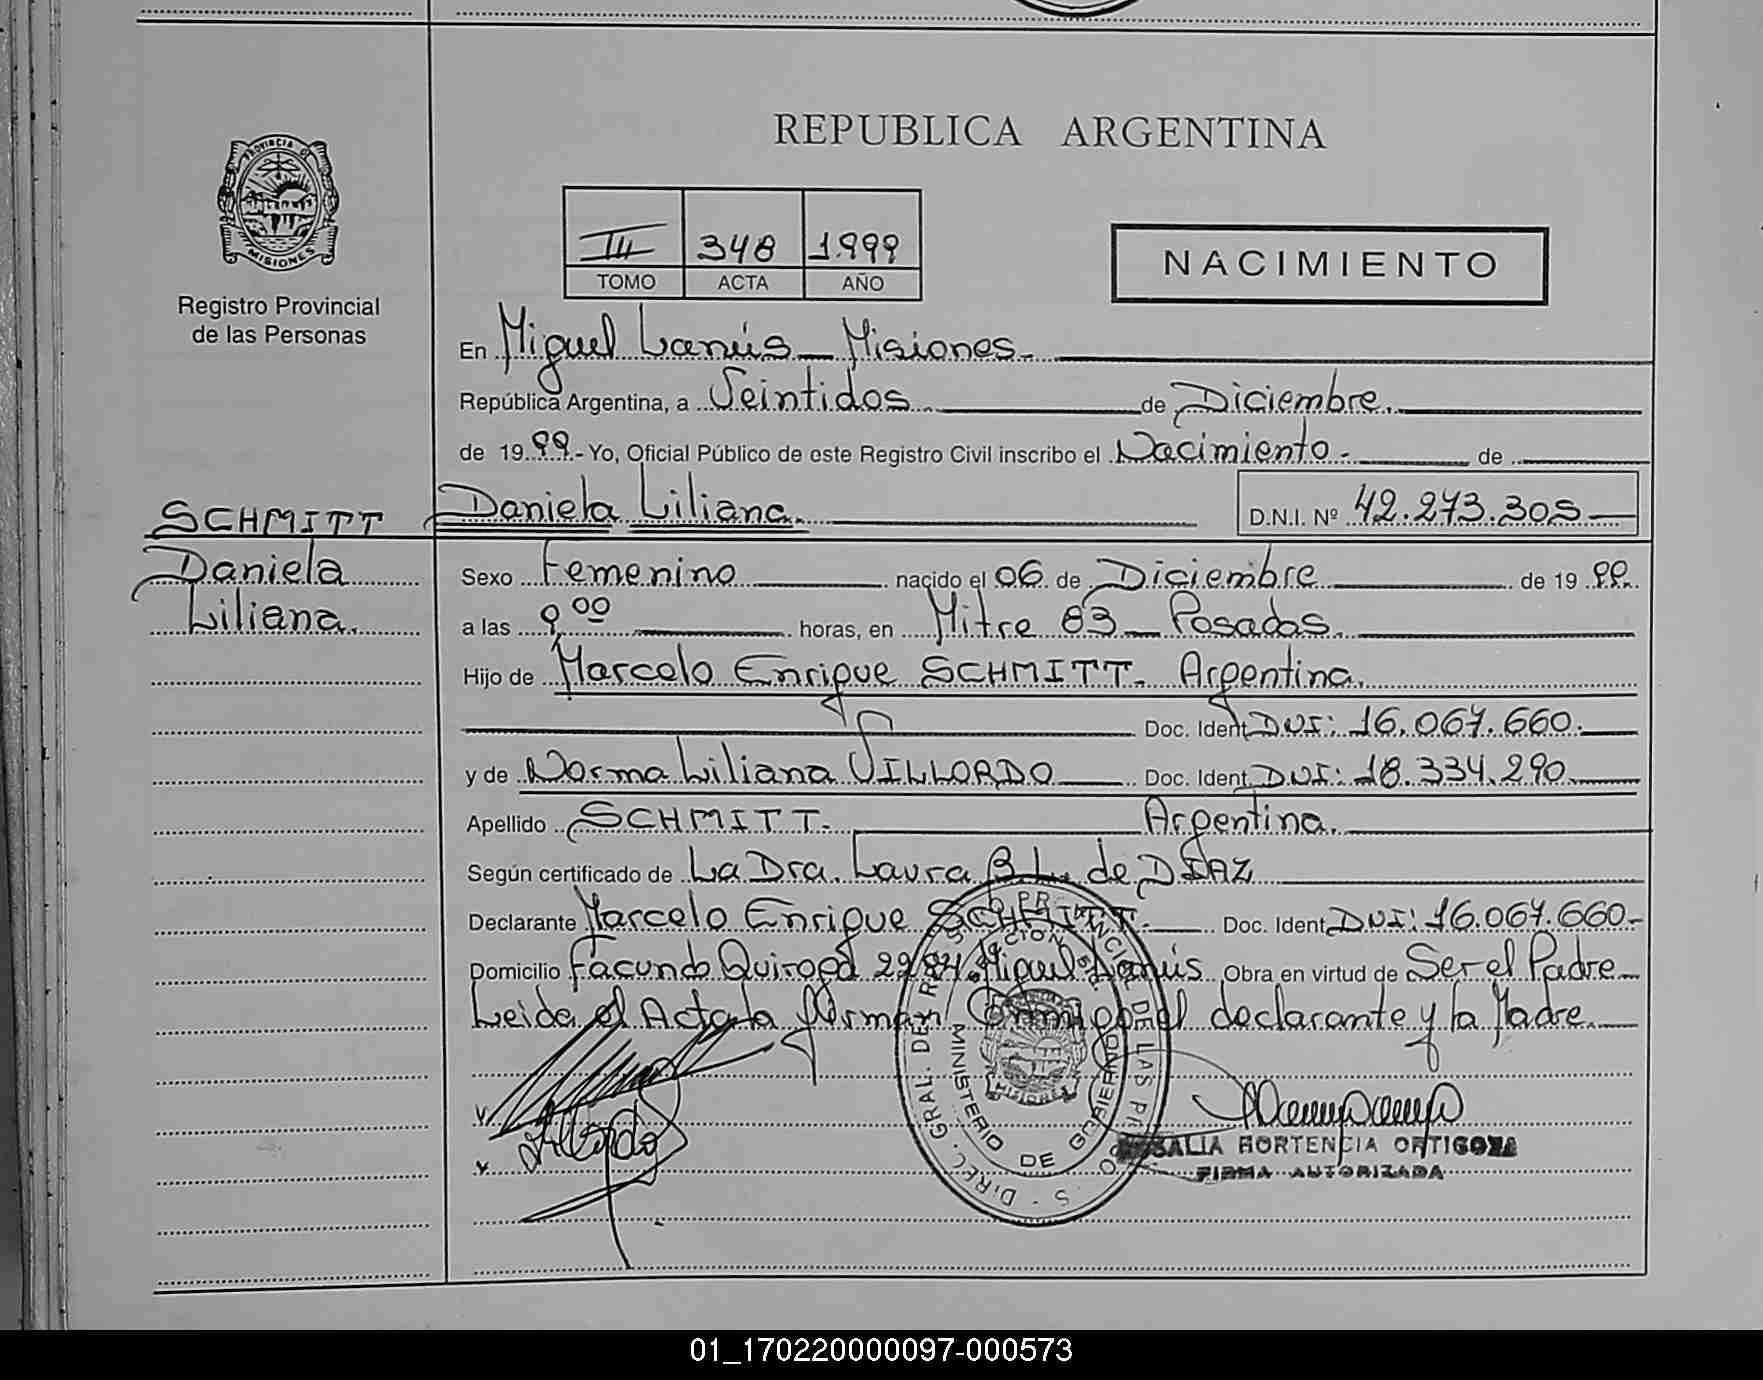 REPUBLICA ARGENTINA
PROVINCIA DE
MISIONES
Registro Provincial
de las Personas
III 348 1.999
TOMO ACTA AÑO
NACIMIENTO
En Miguel Lanús - Misiones.
República Argentina, a Veintidos de Diciembre.
de 1999.- Yo, Oficial Público de este Registro Civil inscribo el Nacimiento.- de
SCHMITT Daniela Liliana. D.N.I. Nº 42.273.305
Daniela
Liliana.
Sexo Femenino nacido el 06 de Diciembre de 1999.
a las 9,00 horas, en Mitre 83 - Posadas.
Hijo de Marcelo Enrique SCHMITT. Argentina.
Doc. Ident. DNI: 16.067.660.
y de Norma Liliana VILLORDO Doc. Ident. DNI: 18.334.290
Apellido SCHMITT. Argentina.
Según certificado de La Dra. Laura B. L. de DIAZ
Declarante Marcelo Enrique SCHMITT. Doc. Ident. DNI: 16.067.660.-
Domicilio Facundo Quiroga 2284. Miguel Lanús Obra en virtud de Ser el Padre
Leida el Acta la firman Conmigo el declarante y la Madre.
DIREC. GRAL. DEL DE LAS
MINISTERIO DE GOBIERNO
MISIONES
Villordo
HORTENCIA ORTIGOZA
FIRMA AUTORIZADA
01_170220000097-000573